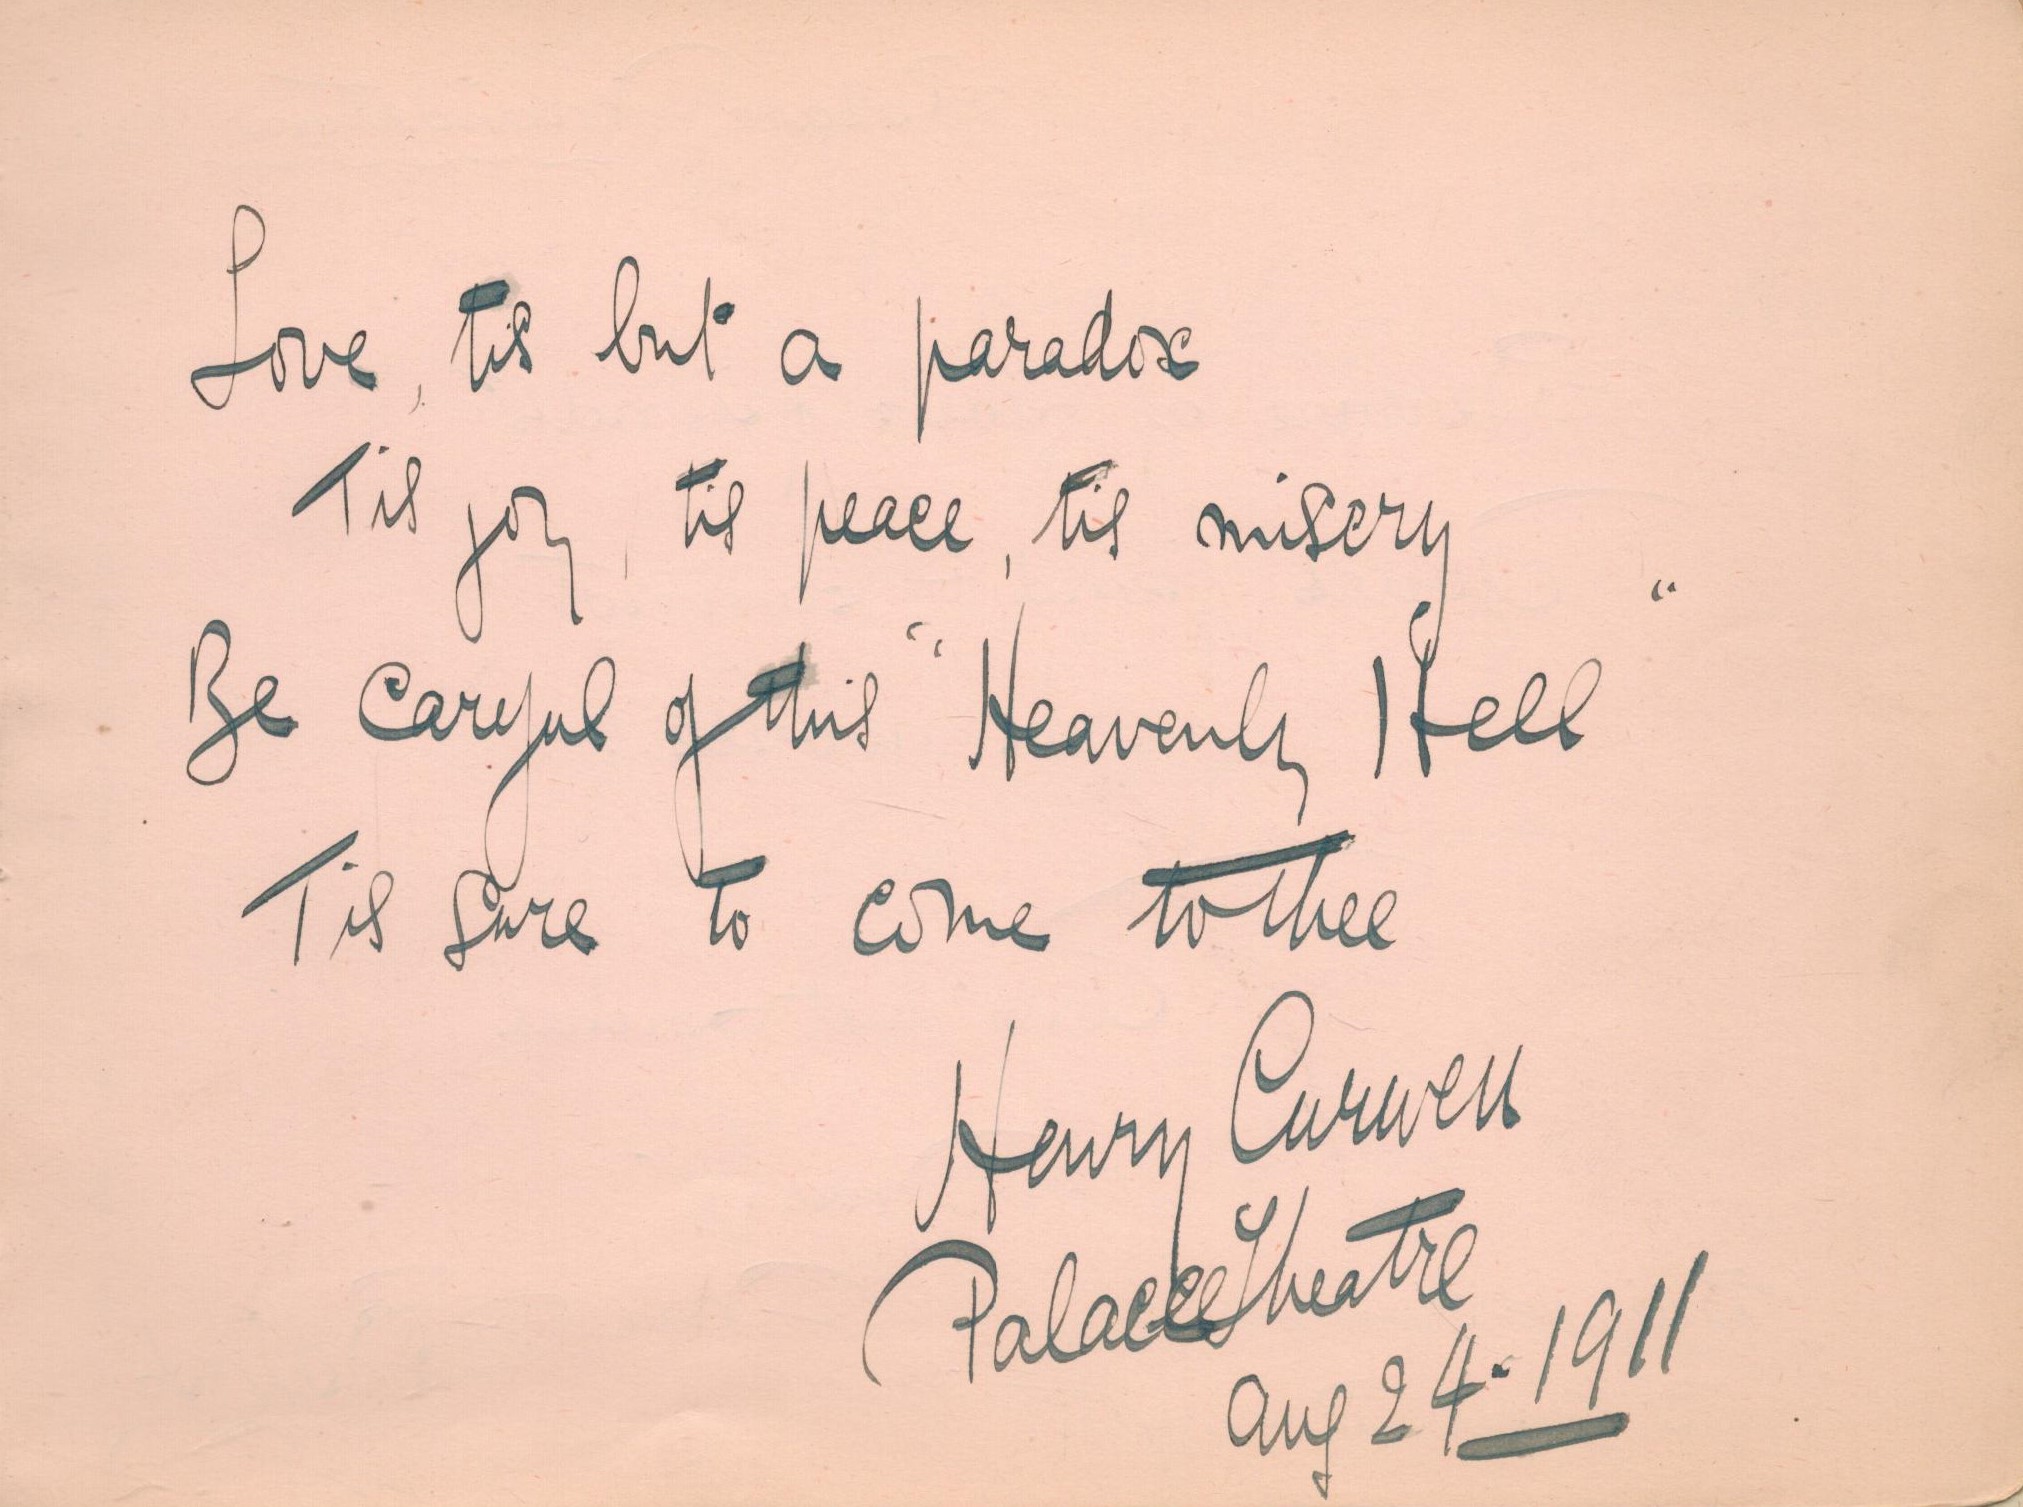 Love, tis but a paradox
Tis joy, tis peace, tis misery
Be careful of this "Heavenly Hell"
Tis sure to come to thee
Henry Curwen
Palace Theatre
Aug 24. 1911